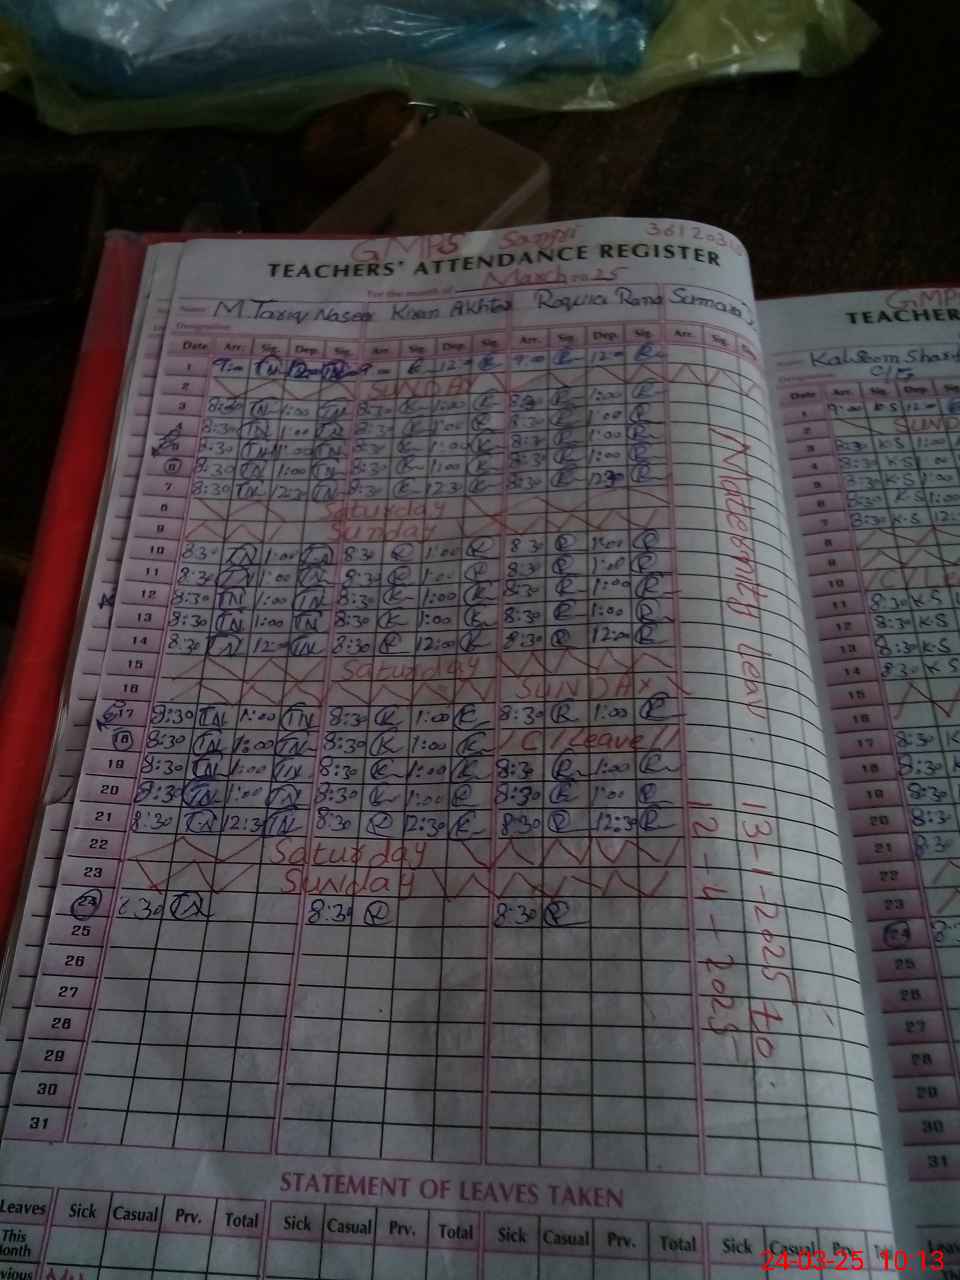 GMPS Sangri
TEACHERS' ATTENDANCE REGISTER
For the month of March 2025
Name M.Tariq Naseer Kiran Akhtar Roquia Rana Sumara
Designation
Date Arr. Sig. Dep. Sig. Arr. Sig. Dep. Sig. Arr. Sig. Dep. Sig. Arr. Sig.
1 9:00 TN 12:00 TN 9:00 K 12:00 K 9:00 R 12:00 R
2 SUNDAY
3 8:30 TN 1:00 TN 8:30 K 1:00 K 8:30 R 1:00 R
8:30 TN 1:00 TN 8:30 K 1:00 K 8:30 R 1:00 R
8:30 TN 1:00 TN 8:30 K 1:00 K 8:30 R 1:00 R
6 8:30 TN 1:00 TN 8:30 K 1:00 K 8:30 R 1:00 R
7 8:30 TN 12:30 TN 8:30 K 12:30 K 8:30 R 12:30 R
8 Saturday
9 Sunday
10 8:30 TN 1:00 TN 8:30 K 1:00 K 8:30 R 1:00 R
11 8:30 TN 1:00 TN 8:30 K 1:00 K 8:30 R 1:00 R
12 8:30 TN 1:00 TN 8:30 K 1:00 K 8:30 R 1:00 R
13 8:30 TN 1:00 TN 8:30 K 1:00 K 8:30 R 1:00 R
14 8:30 TN 12:00 TN 8:30 K 12:00 K 8:30 R 12:00 R
15 Saturday
16 SUNDAY
17 8:30 TN 1:00 TN 8:30 K 1:00 K 8:30 R 1:00 R
18 8:30 TN 1:00 TN 8:30 K 1:00 K C/Leave
19 8:30 TN 1:00 TN 8:30 K 1:00 K 8:30 R 1:00 R
20 8:30 TN 1:00 TN 8:30 K 1:00 K 8:30 R 1:00 R
21 8:30 TN 12:30 TN 8:30 K 12:30 K 8:30 R 12:30 R
22 Saturday
23 Sunday
24 8:30 TN 8:30 K 8:30 R
25
26
27
28
29
30
31
Maternity Leav. 13-1-2025 to
12-4-2025
STATEMENT OF LEAVES TAKEN
Leaves Sick Casual Prv. Total Sick Casual Prv. Total Sick Casual Prv. Total Sick Casual Prv.
This
Month
GMP
TEACHER
Kalsoom Sharif
Date Arr. Sig. Dep.
1 9:00 K.S 12:00
2 SUND
3 8:30 K.S 1:00
4 8:30 K.S 1:00
5 8:30 K.S 1:00
6 8:30 K.S 1:00
7 8:30 K.S 12:
8
9
10 C/Le
11 8:30 K.S
12 8:30 K.S
13 8:30 K.S
14 8:30 K.S
15
16
17 8:30 K
18 8:30 K
19 8:30
20 8:3
21 8:30
22
23
24 8:
25
26
27
28
29
30
31
24-03-25 10:13